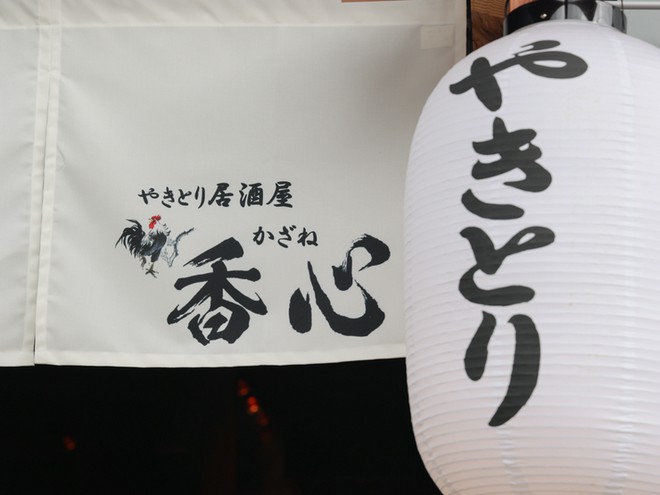 やきとり居酒屋
かざね
香心
やきとり